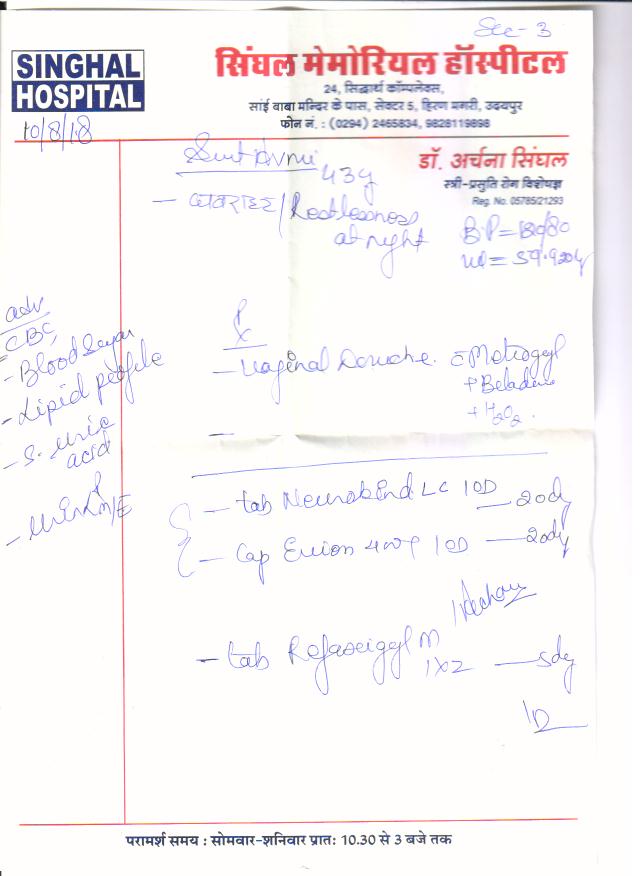 Sec-3
SINGHAL
HOSPITAL
सिंघल मेमोरियल हॉस्पीटल
24, सिद्धार्थ कॉम्पलेक्स,
सांई बाबा मन्दिर के पास, सेक्टर 5, हिरण मगरी, उदयपुर
फोन नं. : (0294) 2465834, 9828119898
10/8/18
डॉ. अर्चना सिंघल
स्त्री-प्रसुति रोग विशेषज्ञ
Reg. No. 05785/21293
Smt 43y
- घबराहट/Restlessness
at night
BP=
wt=
adv
CBC,
- Blood Sugar
- Lipid profile
- S. uric
acid
- M/E
Rx
- Vaginal Douche. c Metrogyl
+ Betadine
+ H2O2.
-
- tab Neurokind LC 1OD - 20dy
- Cap Evion 400 1OD - 20dy
- tab M
1x2 - 5dy
परामर्श समय : सोमवार-शनिवार प्रात: 10.30 से 3 बजे तक